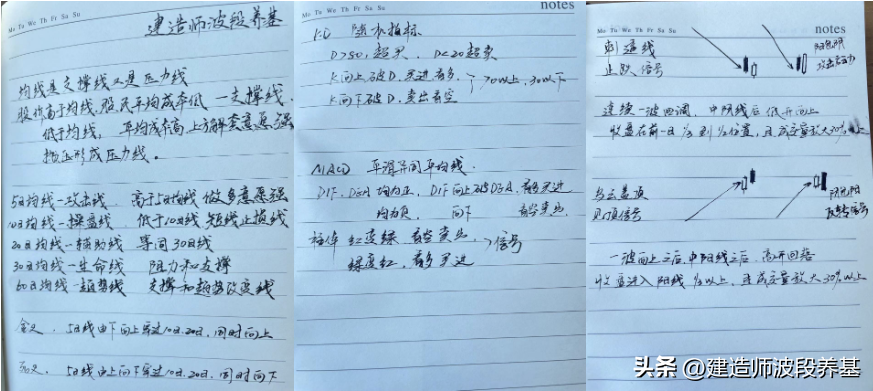 Mo Tu We Th Fr Sa Su
建造师波段养基
均线是支撑线又是压力线
股价高于均线,股民平均成本低—支撑线.
低于均线,平均成本高,上方解套意愿强
抛压形成压力线。
5日均线—攻击线 高于5日均线 做多意愿强
10日均线—操盘线 低于10日线 短线止损线
20日均线—辅助线 等同30日线
30日均线—生命线 阻力和支撑
60日均线—趋势线 支撑和趋势改变线
金叉. 5日线由下向上穿过10日.20日,同时向上
死叉. 5日线由上向下穿过10日.20日,同时向下
Mo Tu We Th Fr Sa Su
notes
KD 随机指标
D>80,超买, D<20超卖
K向上破D,买进看多, >70以上,30以下
K向下破D,卖出看空
MACD 平滑异同平均线.
DIF、DEA均为正,DIF向上破DEA,看多买进
均为负, 向下 看空卖出.
柱体 红变绿 看空卖出 >信号
绿变红,看多买进
Mo Tu We Th Fr Sa Su
notes
刺透线
止跌信号
连续一波回调,中阴线后低开向上
收盘在前一日
位置,且成交量放大30%以上
乌云盖顶
见顶信号
一波向上之后,中阳线之后,高开回落
收盘进入阳线
以上,且成交量放大30%以上
头条 @建造师波段养基